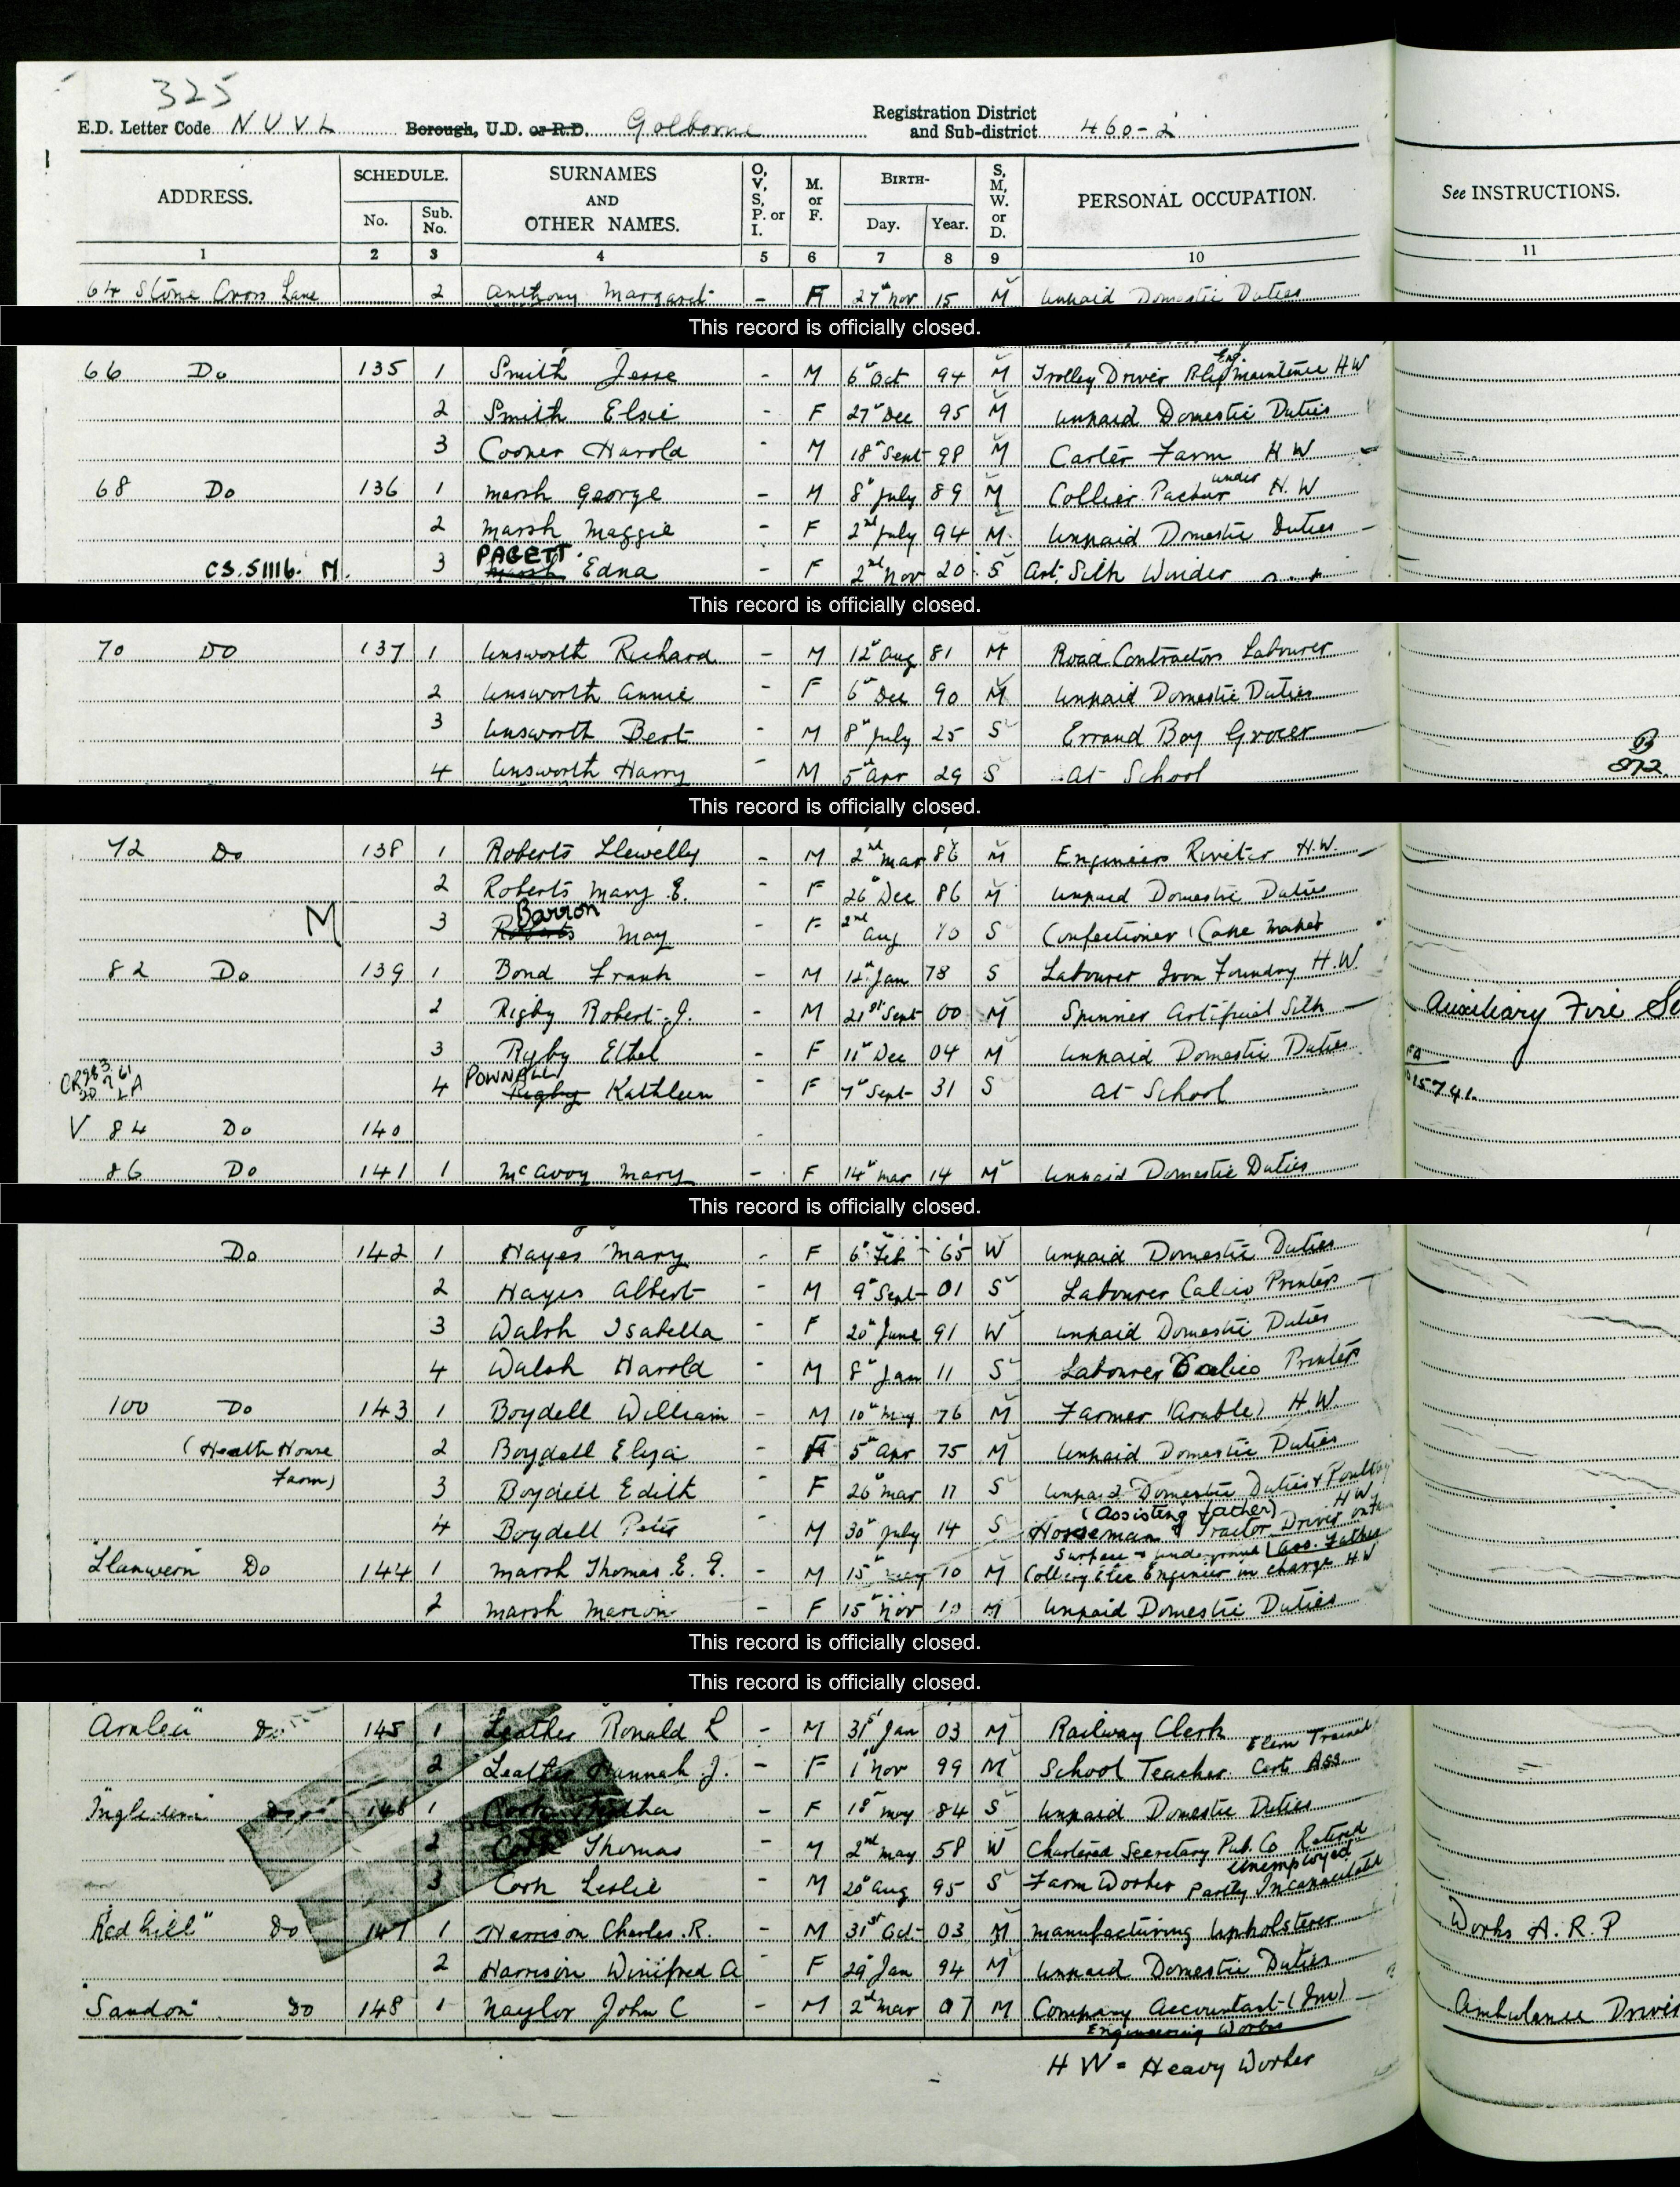 325
E.D. Letter Code N U V L Borough, U.D. or R.D. Golborne Registration District and Sub-district 460-2
ADDRESS. SCHEDULE. No. Sub. No. SURNAMES AND OTHER NAMES. O, V, S, P. or I. M. or F. BIRTH- Day. Year. S, M, W. or D. PERSONAL OCCUPATION. See INSTRUCTIONS.
1 2 3 4 5 6 7 8 9 10 11
64 Stone Cross Lane 2 Anthony Margaret - F 27th Nov 15 M Unpaid Domestic Duties
This record is officially closed.
66 Do 135 1 Smith Jesse - M 6th Oct 94 M Trolley Driver Rly Eng. maintence H W
2 Smith Elsie - F 27th Dec 95 M Unpaid Domestic Duties
3 Cooner Harold - M 18th Sept 98 M Carter Farm H W
68 Do 136 1 Marsh George - M 8th July 89 M Collier Packer under H.W
2 Marsh Maggie - F 2nd July 94 M Unpaid Domestic Duties
CS.51116. M. 3 PAGETT Marsh Edna - F 2nd Nov 20 S Art. Silk Winder
This record is officially closed.
70 Do 137 1 Unsworth Richard - M 12th Aug 81 M Road Contractors Labourer
2 Unsworth Annie - F 6th Dec 90 M Unpaid Domestic Duties
3 Unsworth Bert - M 8th July 25 S Errand Boy Grocer
4 Unsworth Harry - M 5th Apr 29 S At School
This record is officially closed.
72 Do 138 1 Roberts Llewelly - M 2nd Mar 86 M Engineers Riveter H.W.
2 Roberts Mary E. - F 26th Dec 86 M Unpaid Domestic Duties
M 3 Barron Roberts May - F 2nd Aug 10 S Confectioner (Cake Maker
82 Do 139 1 Bond Frank - M 12th Jan 78 S Labourer Iron Foundry H.W.
2 Rigby Robert J. - M 21st Sept 00 M Spinner Artificial Silk Auxiliary Fire Se
3 Rigby Ethel - F 11th Dec 04 M Unpaid Domestic Duties
4 POWNALL Rigby Kathleen - F 7th Sept 31 S At School
V 84 Do 140
86 Do 141 1 McAvoy Mary - F 14th Mar 14 M Unpaid Domestic Duties
This record is officially closed.
Do 142 1 Hayes Mary - F 6th Feb 65 W Unpaid Domestic Duties
2 Hayes Albert - M 9th Sept 01 S Labourer Calico Printers
3 Walsh Isabella - F 20th June 91 W Unpaid Domestic Duties
4 Walsh Harold - M 8th Jan 11 S Labourer Calico Printers
100 Do 143 1 Boydell William - M 10th May 76 M Farmer (Arable) H.W.
(Health House 2 Boydell Eliza - F 5th Apr 75 M Unpaid Domestic Duties
Farm) 3 Boydell Edith F 26th Mar 11 S Unpaid Domestic Duties & Poultry
(Assisting Father) H W
4 Boydell Peter M 30th July 14 S Horseman & Tractor Driver
Surface & underground (Ass. Father
Llanwern Do 144 1 Marsh Thomas E. G. - M 15th May 10 M Colliery Elec Engineer in charge H W
2 Marsh Marion - F 15th Nov 10 M Unpaid Domestic Duties
This record is officially closed.
This record is officially closed.
"Arnlea" Do 145 1 Leather Ronald L - M 31st Jan 03 M Railway Clerk
2 Leather Hannah J. - F 1st Nov 99 M School Teacher Elem Trained Certs Ass.
146 1 Cork - F 18th May 84 S Unpaid Domestic Duties
2 Cork Thomas - M 2nd May 58 W Chartered Secretary Pub. Co Retired
3 Cork Leslie - M 20th Aug 95 S Farm Worker Unemployed Partly Incapacitated
"Red hill" Do 147 1 Harrison Charles R. - M 31st Oct 03 M Manufacturing Upholsterer Works A.R.P
2 Harrison Winifred A - F 29th Jan 94 M Unpaid Domestic Duties
"Sandon" Do 148 1 Naylor John C - M 2nd Mar 07 M Company Accountant Ambulance Driver
Engineering Works
H W = Heavy Worker